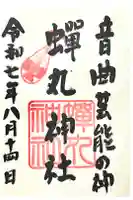 音曲芸能の神
蟬丸神社
令和七年八月十四日
蟬丸
神社